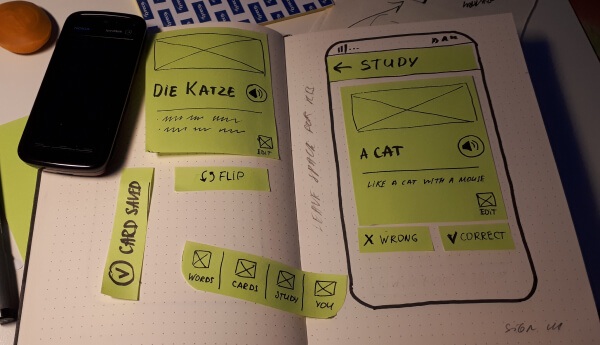 DIE KATZE
EDIT
FLIP
CARD SAVED
WORDS
CARDS
STUDY
YOU
LEAVE SPACE FOR
← STUDY
A CAT
LIKE A CAT WITH A MOUSE
EDIT
X WRONG
✓ CORRECT
SIGN